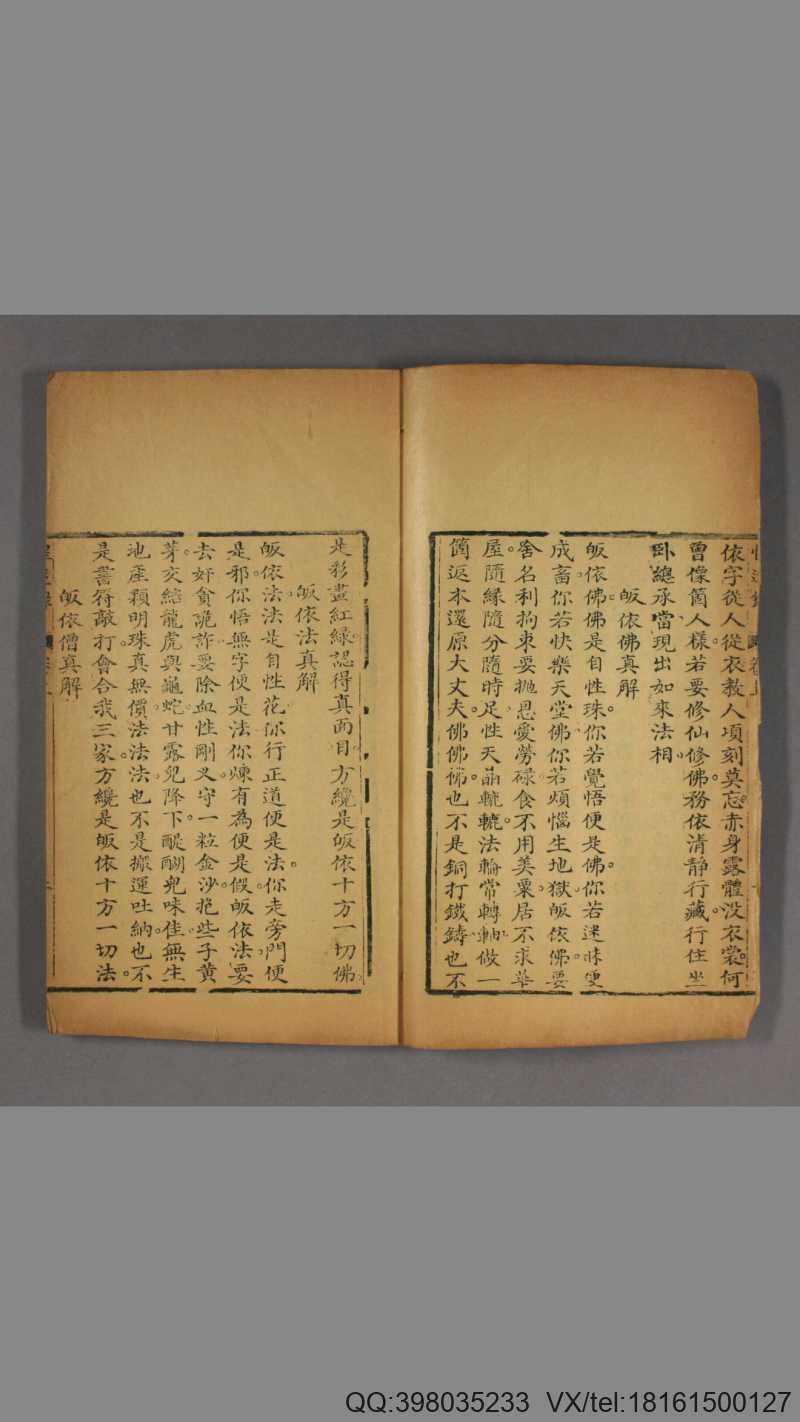 依字從人從衣教人頃刻莫忘。赤身露體没衣裳。何
曾像箇人樣。若要修仙修佛。務依清静行藏。行住坐
卧總承當、現出如來法相。
皈依佛真解
皈依佛。佛是自性珠。你若覺悟便是佛。你若迷昧便
成畜、你若快樂天堂佛、你若煩惱生地獄、皈依佛。要
舍名利拘束要抛恩愛勞碌、食不用美粟。居不求華
屋。隨緣隨分隨時足、性天晶轆轆。法輪常轉軸、做一
箇返本還原大丈夫。佛佛佛。也不是銅打鐵鑄、也不
是彩畫紅緑。認得真面目、方纔是皈依十方一切佛。
皈依法真解
皈依法、法是自性花、你行正道便是法。你走旁門便
是邪。你悟無字便是法、你煉有為便是假。皈依法、要
去奸貪詭詐、要除血性剛叉、守一粒金沙。抱些子黄
芽。交結龍虎與龜蛇。甘露兒降下。醍醐兒味佳。無生
地産顆明珠真無價。法法法。也不是搬運吐納。也不
是書符敲打。會合我三家。方纔是皈依十方一切法。
皈依僧真解
QQ:398035233 VX/tel:18161500127